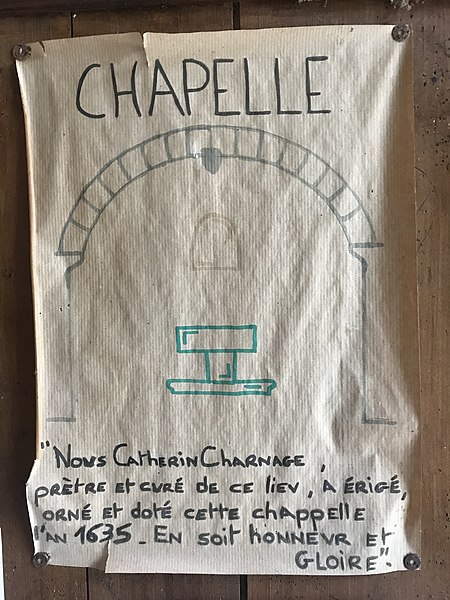 CHAPELLE
"NOUS CATHERIN CHARNAGE,
PRÈTRE ET CVRÉ DE CE LIEV, A ÉRIGÉ,
ORNÉ ET DOTÉ CETTE CHAPPELLE
L'AN 1635. EN SOIT HONNEVR ET
GLOIRE".